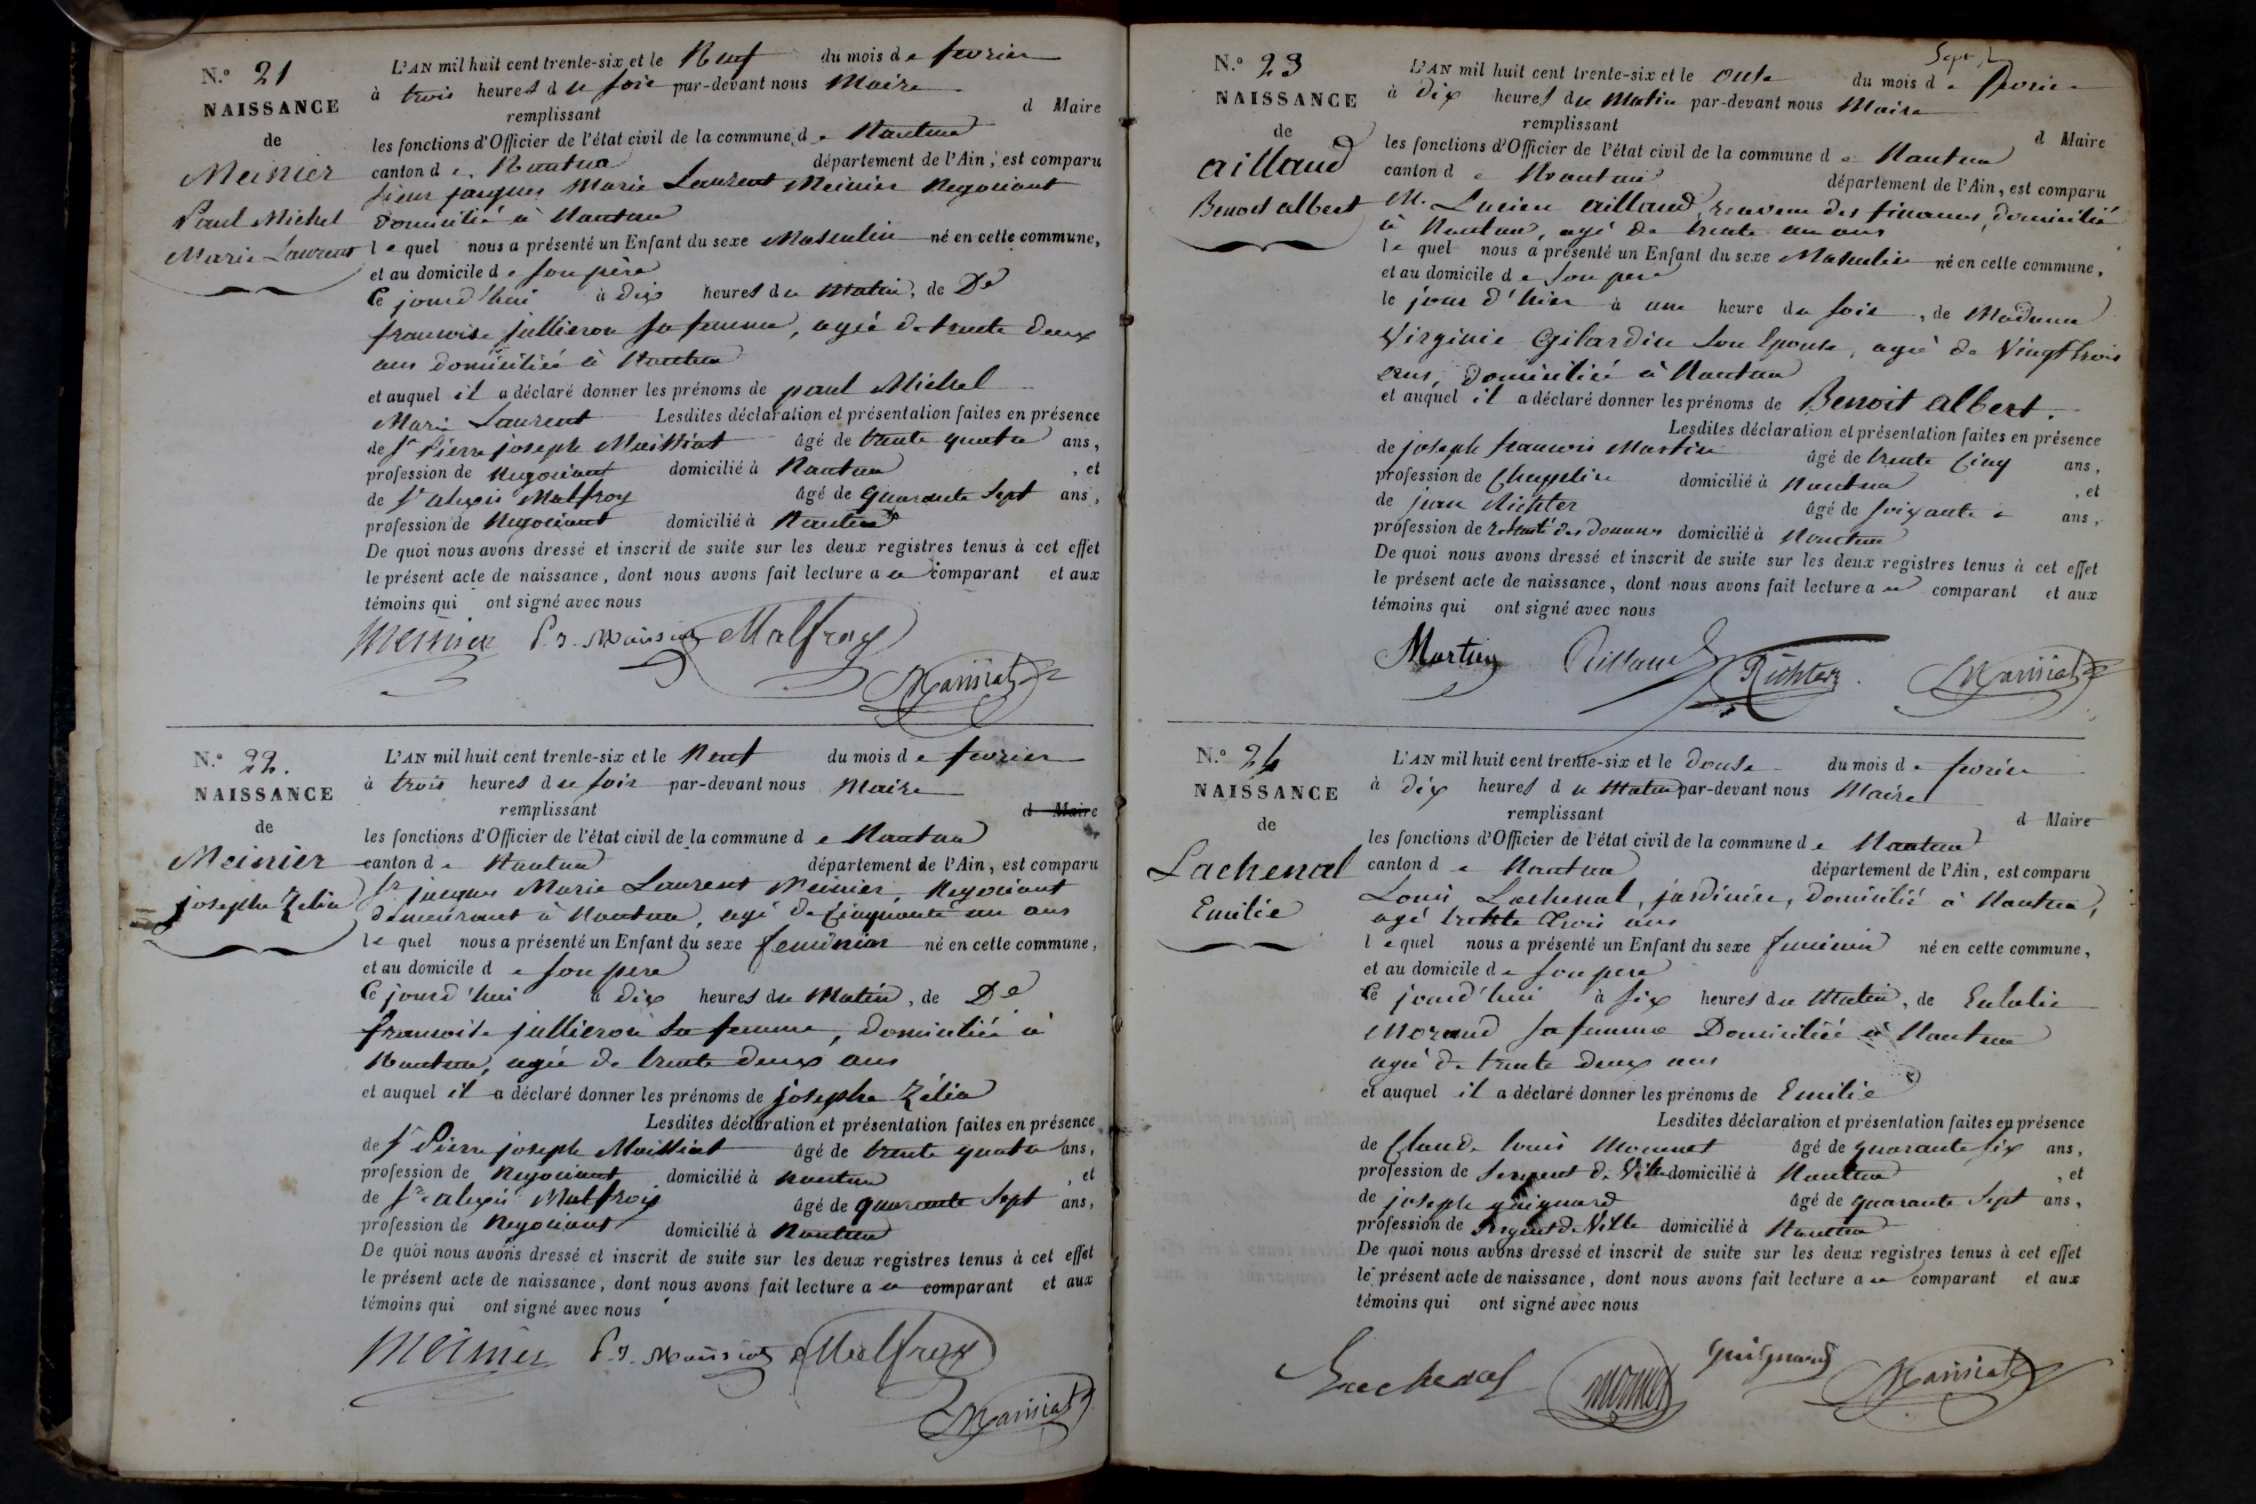 N.º 21
NAISSANCE
de
Meinier
Paul Michel
Marie Laurent
L'AN mil huit cent trente-six et le Neuf du mois de fevrier
à trois heures du soir par-devant nous Maire
remplissant d Maire
les fonctions d'Officier de l'état civil de la commune de Nantua
canton de Nantua département de l'Ain, est comparu
sieur jacques Marie Laurent Meinier Negociant
domicilié à Nantua
lequel nous a présenté un Enfant du sexe Masculin né en cette commune,
et au domicile de son père
Ce jourd'hui à dix heures du Matin, de De
francoise jullieron sa femme, agée de trente deux
ans domiciliée à Nantua
et auquel il a déclaré donner les prénoms de paul Michel
Marie Laurent Lesdites déclaration et présentation faites en présence
de Sr Pierre joseph Maissiat âgé de trente quatre ans,
profession de Negociant domicilié à Nantua, et
de Sr alexis Malfroy âgé de quarante sept ans,
profession de Negociant domicilié à Nantua
De quoi nous avons dressé et inscrit de suite sur les deux registres tenus à cet effet
le présent acte de naissance, dont nous avons fait lecture au comparant et aux
témoins qui ont signé avec nous
Meinier P. J. Maissiat Malfroy
Maissiat
N.º 22.
NAISSANCE
de
Meinier
josephe Zelia
L'AN mil huit cent trente-six et le Neuf du mois de fevrier
à trois heures du soir par-devant nous Maire
remplissant d Maire
les fonctions d'Officier de l'état civil de la commune de Nantua
canton de Nantua département de l'Ain, est comparu
Sr jacques Marie Laurent Meinier, Negociant
demeurant à Nantua, agé de Cinquante un ans
lequel nous a présenté un Enfant du sexe feminin né en cette commune,
et au domicile de son pere
Ce jourd'hui à dix heures du Matin, de De
francoise jullieron sa femme, domiciliée à
Nantua, agée de trente deux ans
et auquel il a déclaré donner les prénoms de josephe Zélia
Lesdites déclaration et présentation faites en présence
de Sr Pierre joseph Maissiat âgé de trente quatre ans,
profession de Negociant domicilié à nantua, et
de Sr alexis Malfroy âgé de quarante sept ans,
profession de Negociant domicilié à Nantua
De quoi nous avons dressé et inscrit de suite sur les deux registres tenus à cet effet
le présent acte de naissance, dont nous avons fait lecture au comparant et aux
témoins qui ont signé avec nous
Meinier P. J. Maissiat Malfroy
Maissiat
N.º 23
NAISSANCE
de
aillaud
Benoit albert
Sept
L'AN mil huit cent trente-six et le onze du mois de fevrier
à Dix heures du Matin par-devant nous Maire
remplissant d Maire
les fonctions d'Officier de l'état civil de la commune de Nantua
canton de Nantua département de l'Ain, est comparu
M. Lucien aillaud, receveur des finances, domicilié
à Nantua, agé de trente un ans
lequel nous a présenté un Enfant du sexe Masculin né en cette commune,
et au domicile de son pere
le jour d'hier à une heure du soir, de Madame
Virginie Gilardin son Epouse, agée de Vingt trois
ans, domiciliée à Nantua
et auquel il a déclaré donner les prénoms de Benoit albert.
Lesdites déclaration et présentation faites en présence
de joseph francois Martin âgé de trente Cinq ans,
profession de Chapelier domicilié à Nantua, et
de jean Richter âgé de soixante ans,
profession de retraité des douanes domicilié à Nantua
De quoi nous avons dressé et inscrit de suite sur les deux registres tenus à cet effet
le présent acte de naissance, dont nous avons fait lecture au comparant et aux
témoins qui ont signé avec nous
Martin Aillaud Richter Maissiat
N.º 24
NAISSANCE
de
Lachenal
Emilie
L'AN mil huit cent trente-six et le douze du mois de fevrier
à dix heures du Matin par-devant nous Maire
remplissant d Maire
les fonctions d'Officier de l'état civil de la commune de Nantua
canton de Nantua département de l'Ain, est comparu
Louis Lachenal, jardinier, domicilié à Nantua,
agé trente trois ans
lequel nous a présenté un Enfant du sexe feminin né en cette commune,
et au domicile de son pere
Ce jourd'hui à six heures du Matin, de Eulalie
Morand sa femme Domiciliée à Nantua
agée de trente deux ans
et auquel il a déclaré donner les prénoms de Emilie
Lesdites déclaration et présentation faites en présence
de Claude louis Monnet âgé de quarante six ans,
profession de Sergent de Ville domicilié à Nantua, et
de joseph guignard âgé de quarante Sept ans,
profession de Sergent de Ville domicilié à Nantua
De quoi nous avons dressé et inscrit de suite sur les deux registres tenus à cet effet
le présent acte de naissance, dont nous avons fait lecture au comparant et aux
témoins qui ont signé avec nous
Lachenal monnet guignard Maissiat